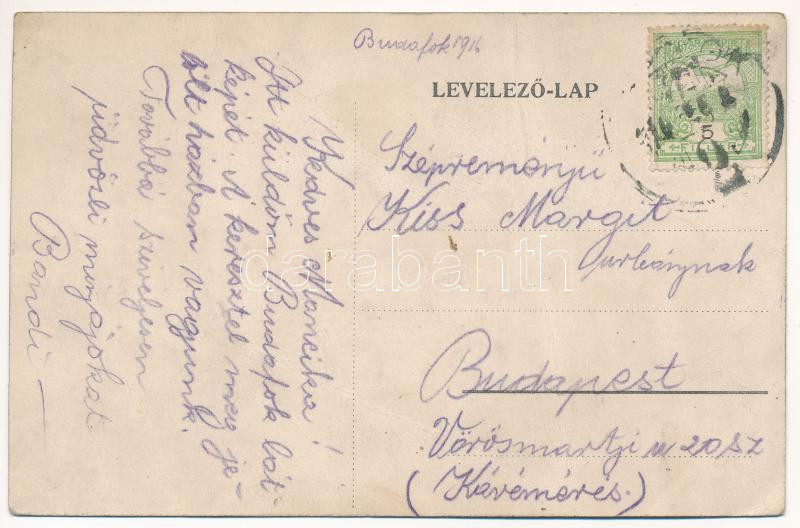 Budafok 1916
LEVELEZŐ-LAP
Kedves Mancika!
Itt küldöm Budafok lát-
képét. A kereszttel meg je-
lölt házban vagyunk.
Továbbá szívélyesen
üdvözli mnyájokat
Bandi
Szépreményű
Kiss Margit
urleánynak
Budapest
Vörösmartji u 20 sz
(Kávémérés.)
5
darabanth